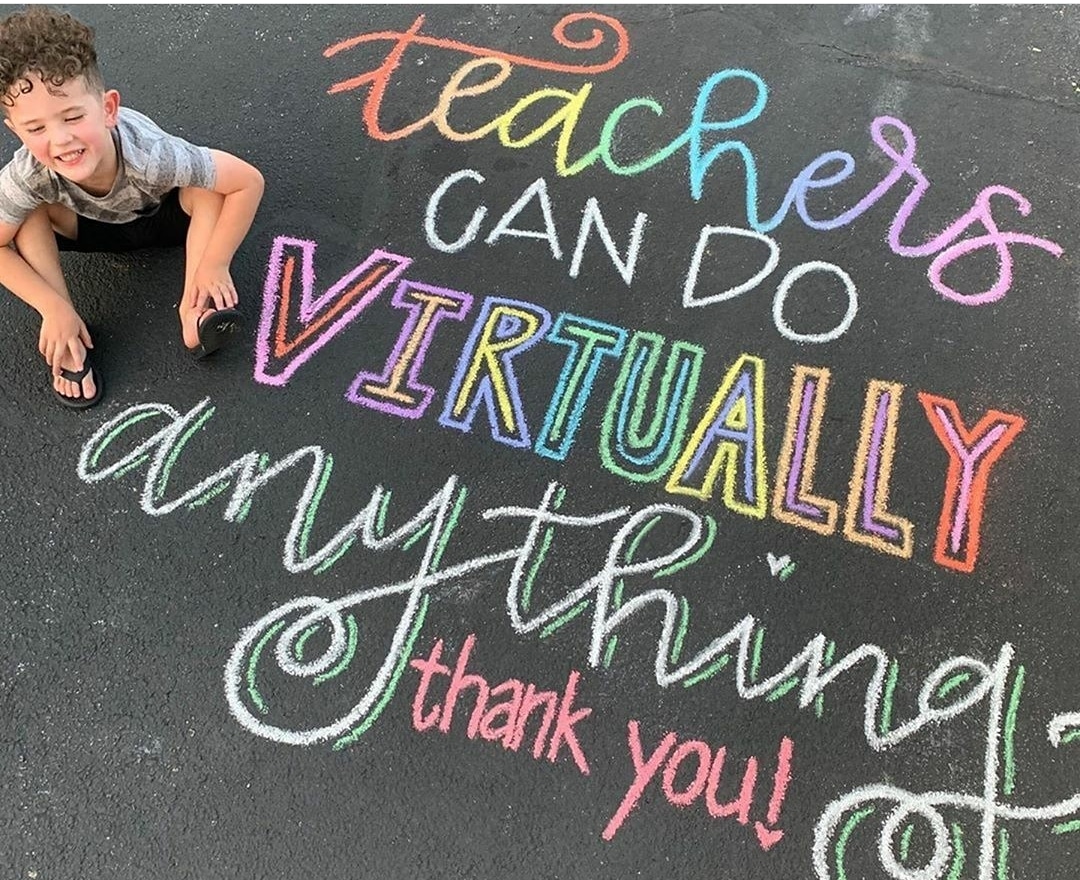 teachers
CAN DO
VIRTUALLY
anything
thank you!